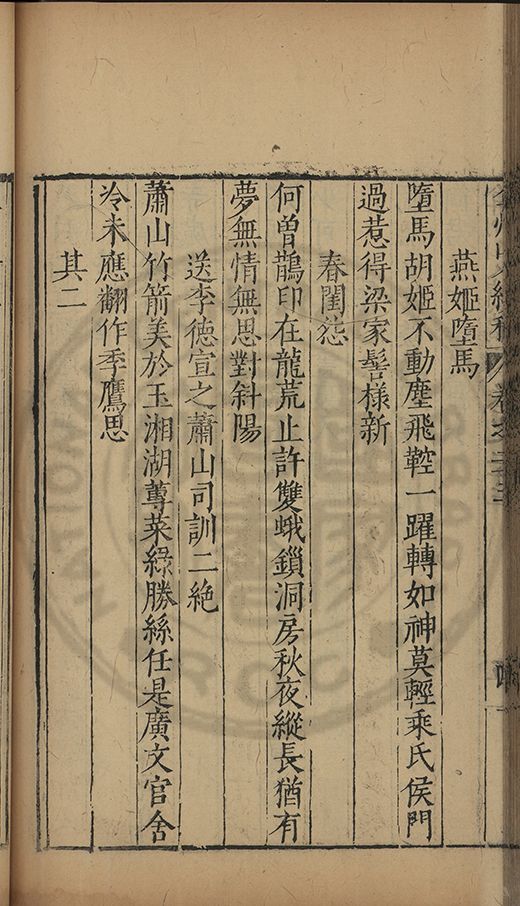 燕姬墮馬
墮馬胡姬不動塵飛鞚一躍轉如神莫輕乘氏侯門
過惹得梁家髻樣新
春閨怨
何曾鵲印在龍荒止許雙蛾鎖洞房秋夜縱長猶有
夢無情無思對斜陽
送李德宣之蕭山司訓二絶
蕭山竹箭美於玉湘湖蓴菜綠勝絲任是廣文官舍
冷未應翻作季鷹思
其二